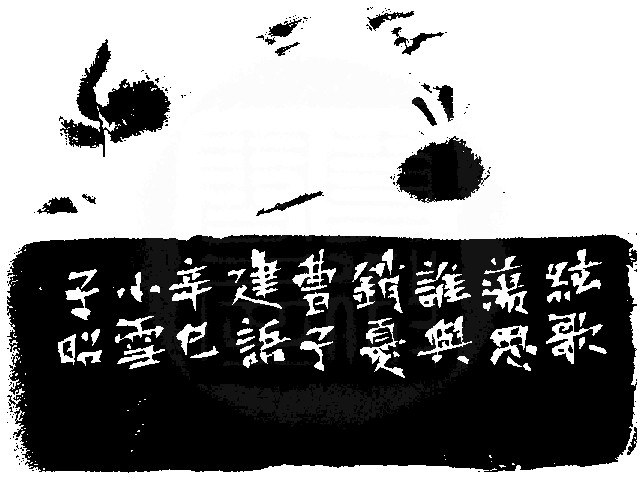 絃歌
蕩思
誰與
銷憂
曹子
建語
辛巳
小雪
子昭